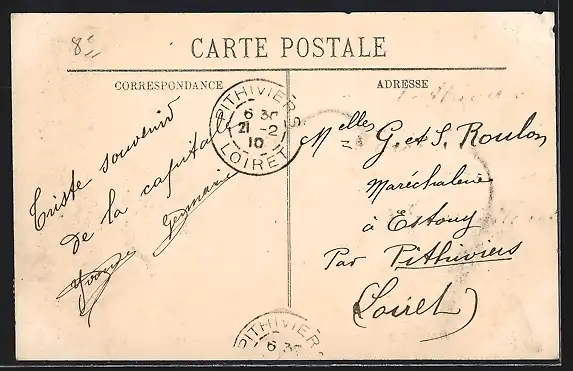 85
CARTE POSTALE
CORRESPONDANCE
ADRESSE
PITHIVIERS
6 30
21 -2
10
LOIRET
Triste souvenir
de la capitale
Yvonne Germaine
Melles G. et S. Roulon
Maréchalerie
à Estouy
Par Pithiviers
(Loiret)
PITHIVIERS
6 30